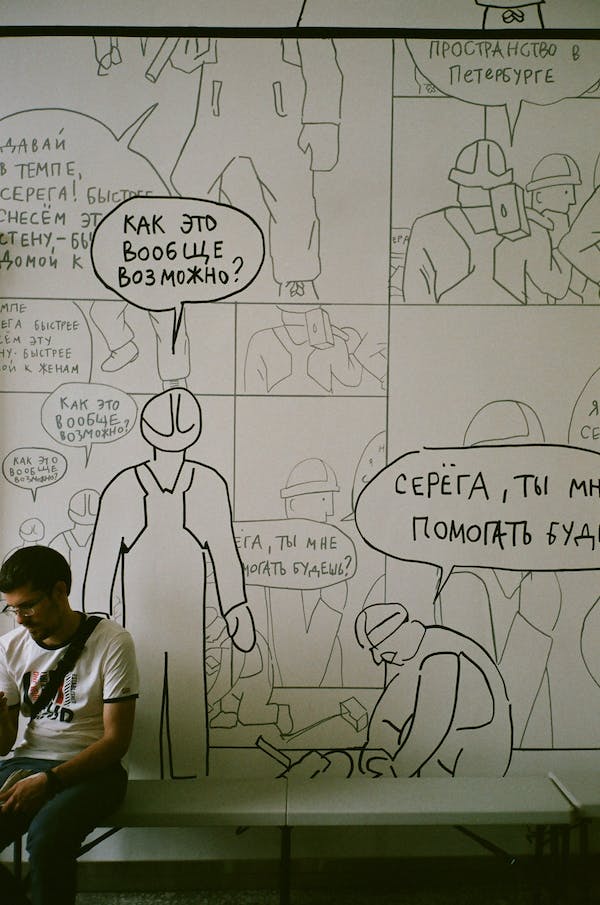 ПРОСТРАНСТВО В
ПЕТЕРБУРГЕ
ДАВАЙ
В ТЕМПЕ,
СЕРЕГА! БЫСТРЕЕ
СНЕСЁМ ЭТ
СТЕНУ,-БЫ
ДОМОЙ К
КАК ЭТО
ВООБЩЕ
ВОЗМОЖНО?
МПЕ
ЕГА БЫСТРЕЕ
ЕМ ЭТУ
НУ- БЫСТРЕЕ
ОЙ К ЖЕНАМ
КАК ЭТО
ВООБЩЕ
ВОЗМОЖНО?
КАК ЭТО
ВООБЩЕ
ВОЗМОЖНО?
Я
СЕ
СЕРЁГА, ТЫ МН
ПОМОГАТЬ БУД
ЕГА, ТЫ МНЕ
МОГАТЬ БУДЕШЬ?